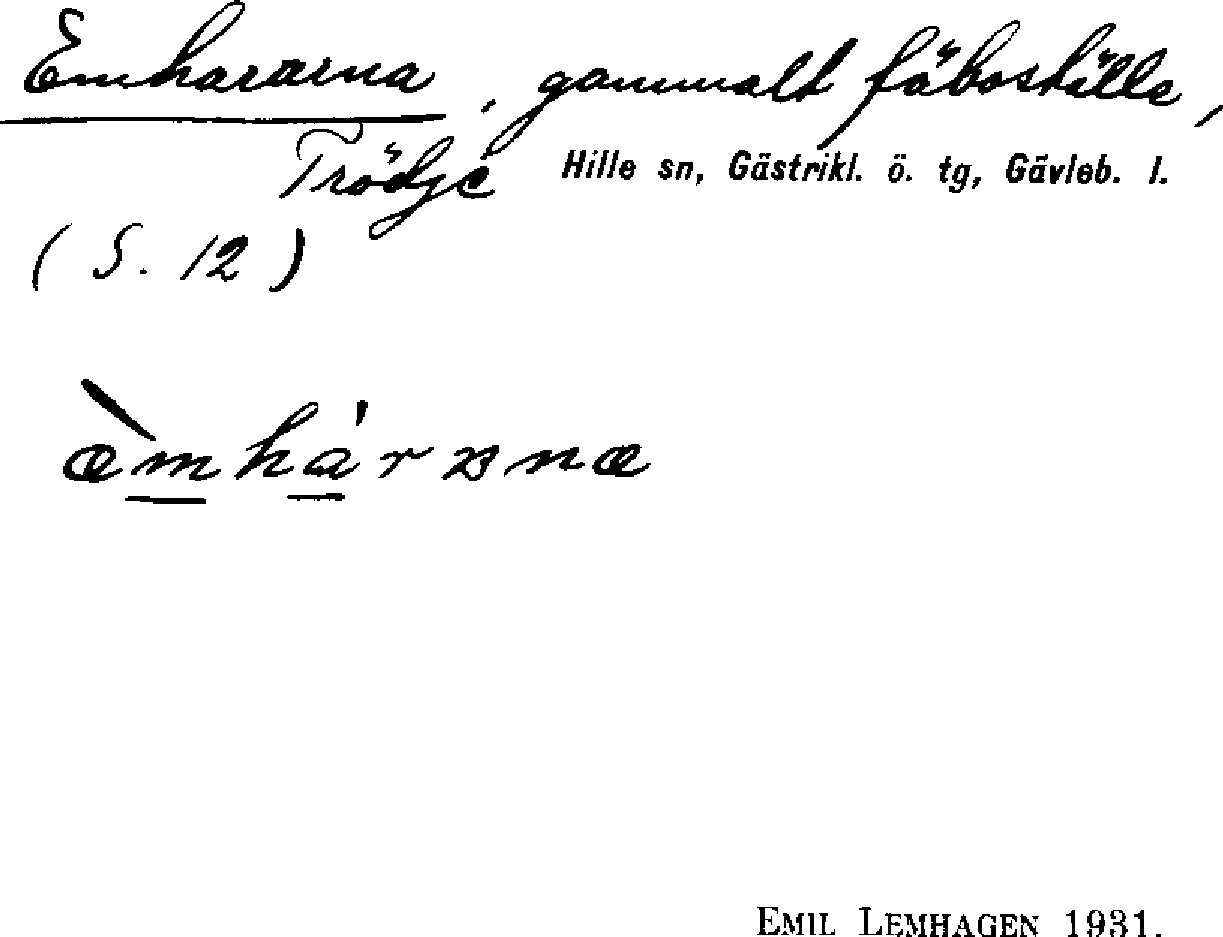 Emhararna, gammalt fäboställe,
Trödje Hille sn, Gästrikl. ö. tg, Gävleb. l.
(S. 12)
EMIL LEMHAGEN 1931.